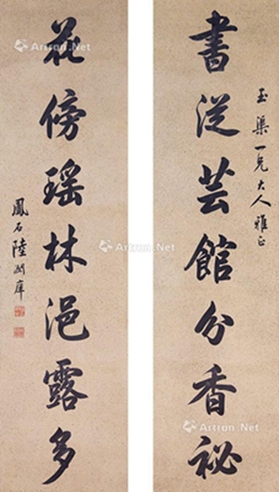 書從芸館分香祕
玉渠一兄大人雅正
花傍瑤林浥露多
鳳石陸潤庠
Artron.Net
Artron.Net
Artron.Net
Artron.Net
Artron.Net
Artron.Net